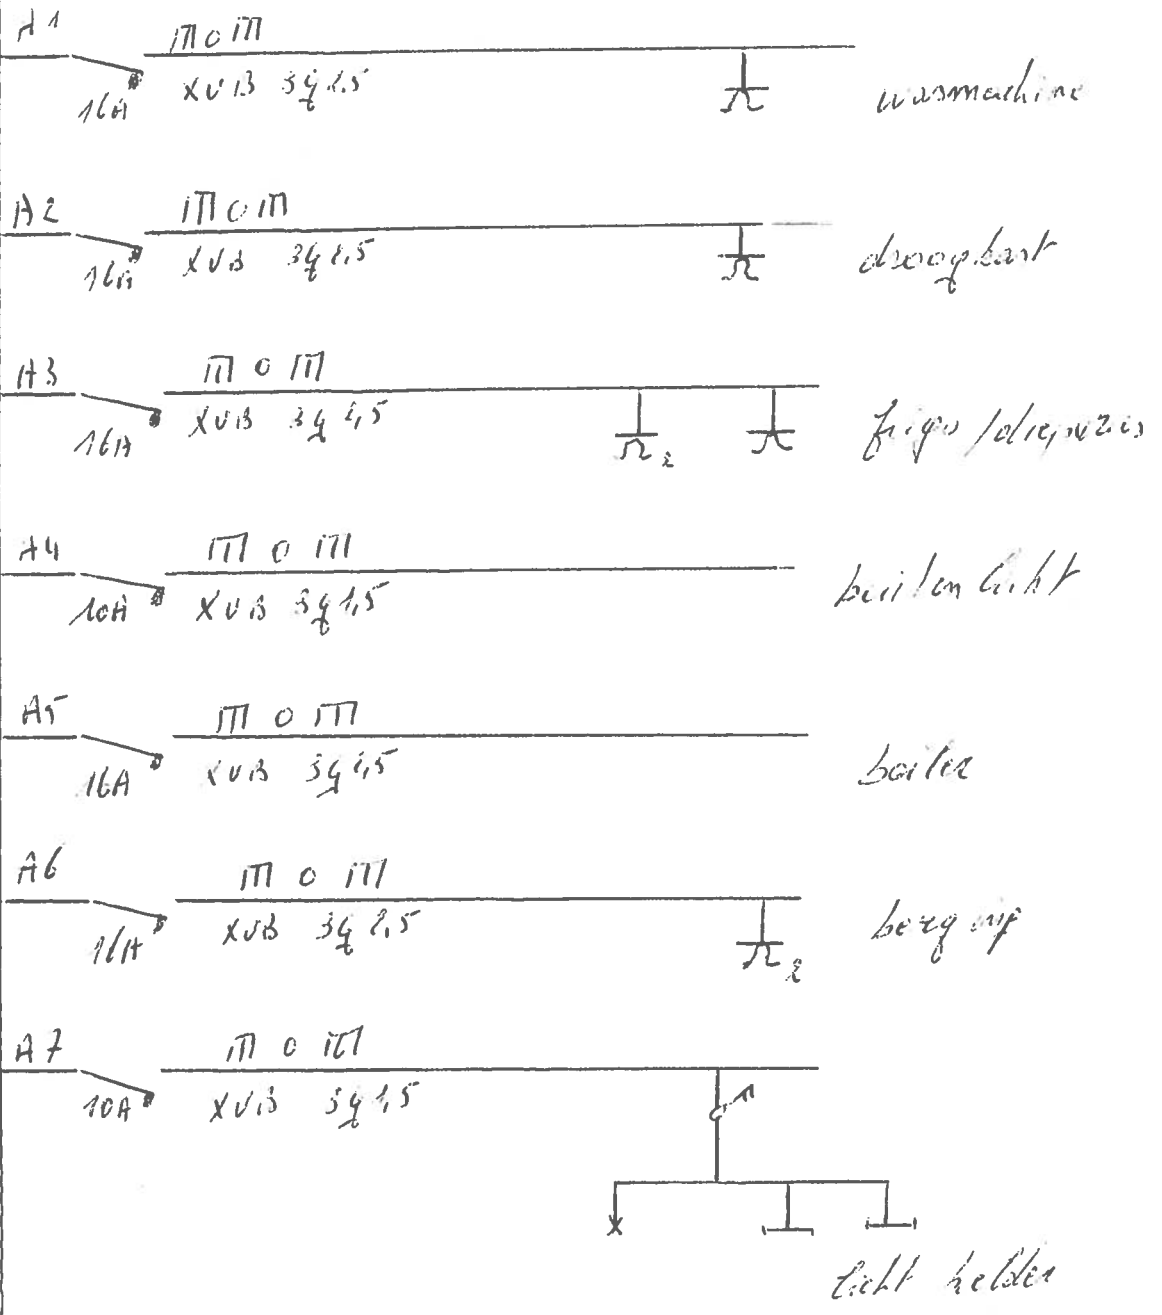 A1
16A XVB 3g 2,5 wasmachine
A2
16A XVB 3g 2,5 droogkast
A3
16A XVB 3g 2,5 2 frigo / diepvries
A4
10A XVB 3g 1,5 buitenlicht
A5
16A XVB 3g 2,5 boiler
A6
16A XVB 3g 2,5 2 berging
A7
10A XVB 3g 1,5
licht kelder